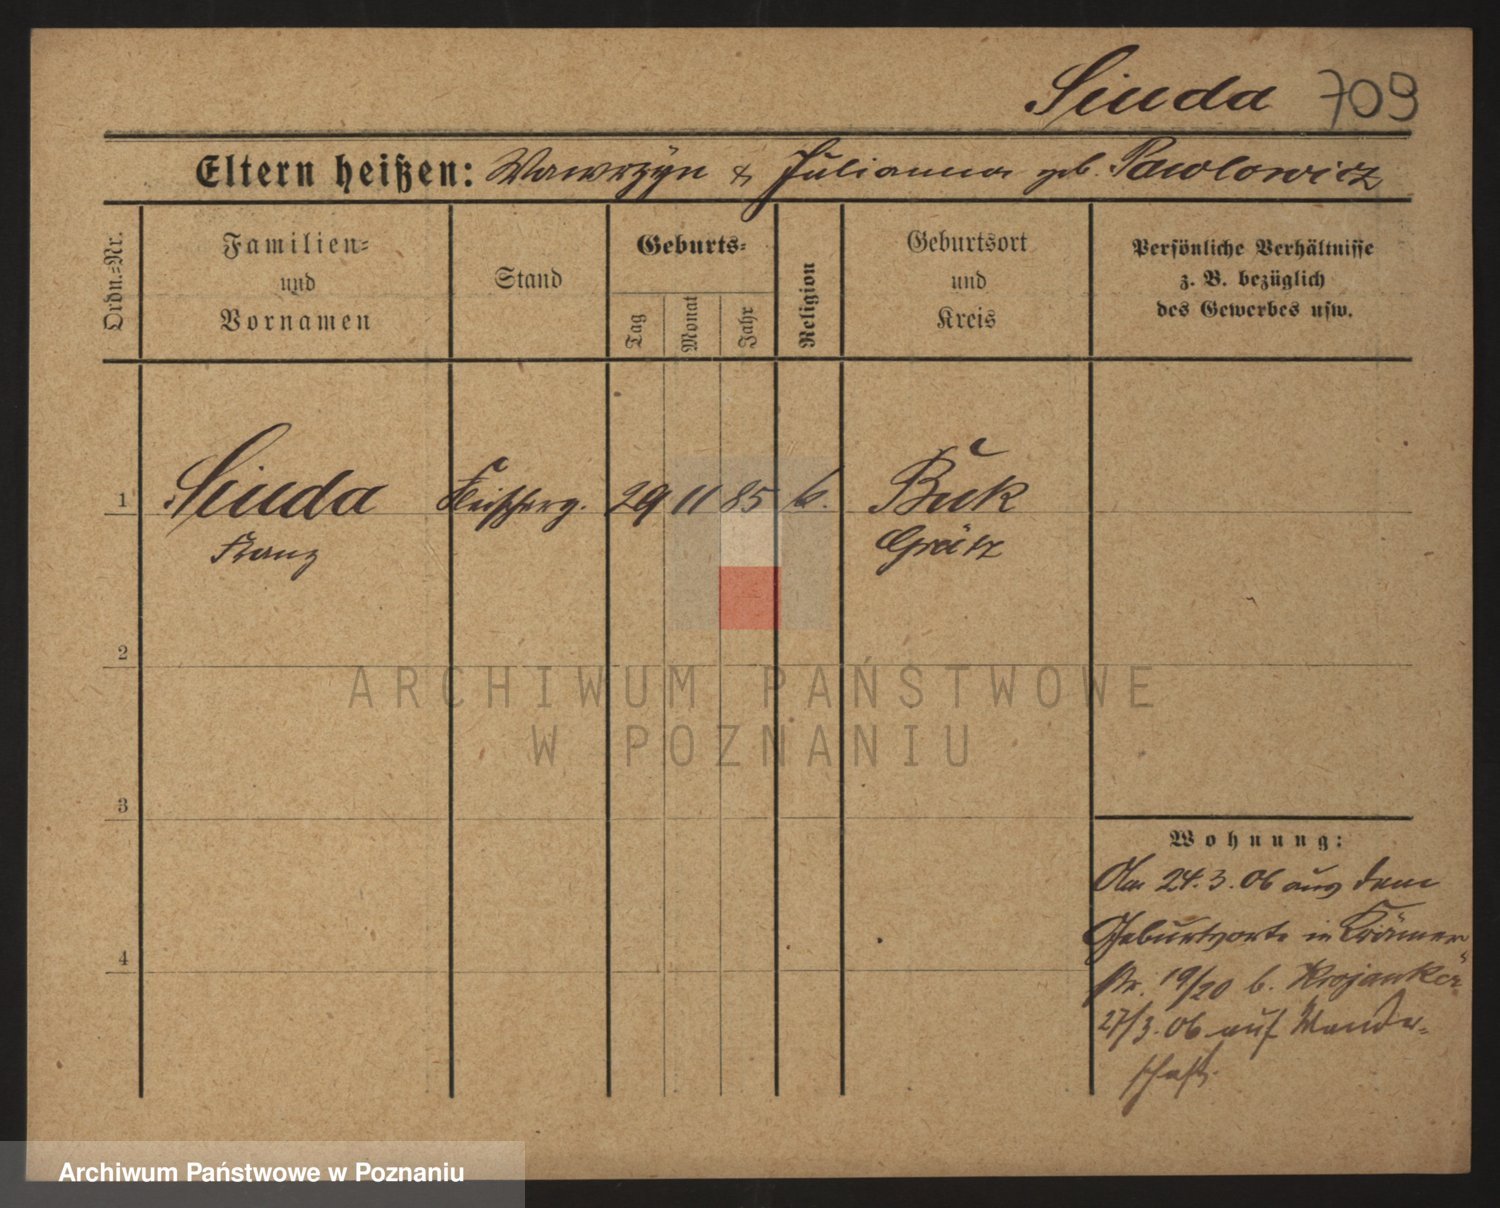 Siuda 709
Eltern heißen: Wawrzyn & Julianna geb. Pawlowicz
Ordn.-Nr.
Familien-
und
Vornamen
Stand
Geburts-
Tag
Monat
Jahr
Religion
Geburtsort
und
Kreis
Persönliche Verhältnisse
z. B. bezüglich
des Gewerbes usw.
1 Siuda Fleischerg. 29 11 85 k. Buk
Franz Grätz
2
3
4
Wohnung:
Am 24.3.06 aus dem
Geburtsorte in Krämer
str. 19/20 b. Krojanker
27/3.06 auf Wander-
schaft.
ARCHIWUM PAŃSTWOWE
W POZNANIU
Archiwum Państwowe w Poznaniu